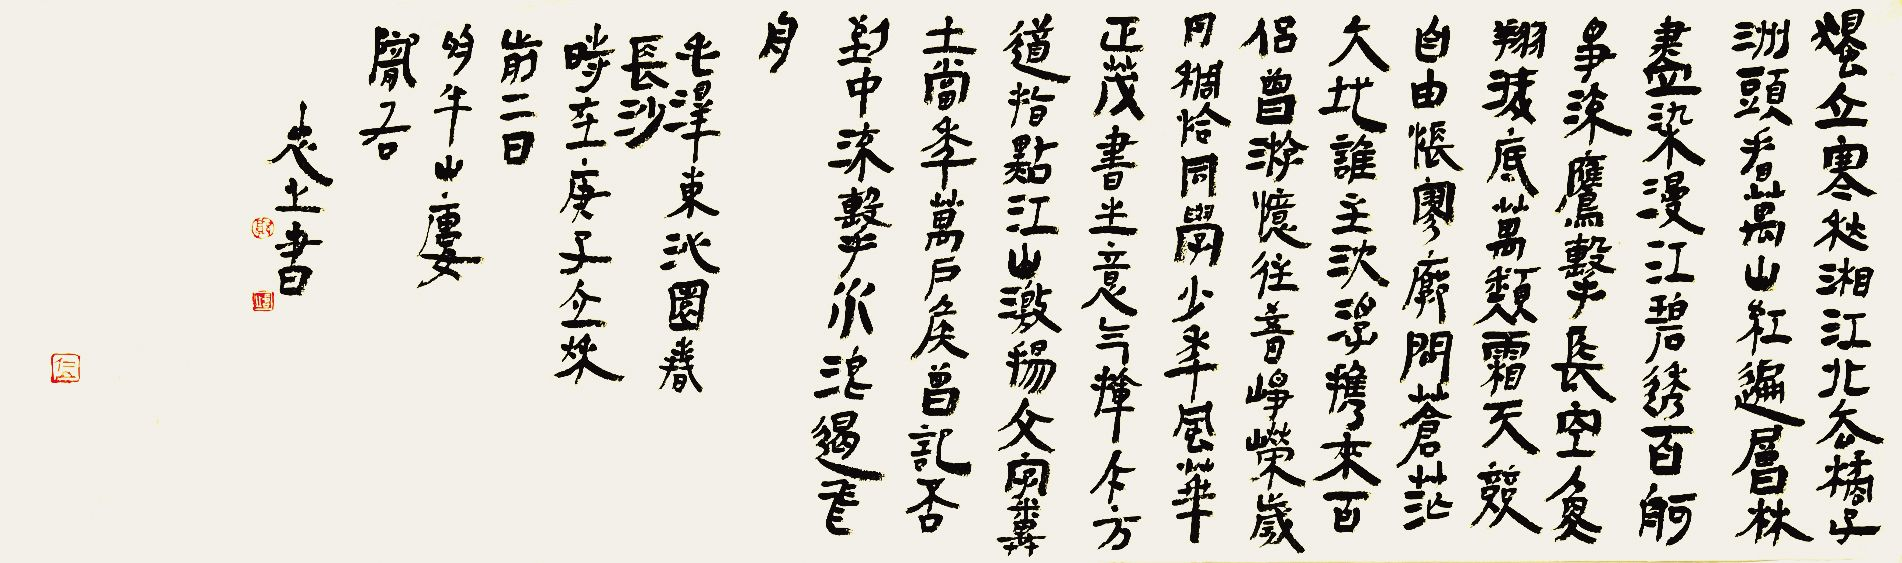 獨立寒秋湘江北去橘子
洲頭看萬山紅遍層林
盡染漫江碧綉百舸
爭流鷹擊長空魚
翔淺底萬類霜天競
自由悵寥廓問蒼茫
大地誰主沈浮攜來百
侶曾游憶往昔崢嶸歲
月稠恰同學少年風華
正茂書生意气揮斥方
遒指點江山激揚文字糞
土當年萬戶侯曾記否
到中流擊水浪遏飛
舟
毛澤東沁園春
長沙
時在庚子立秋
前二日
於牛山
書